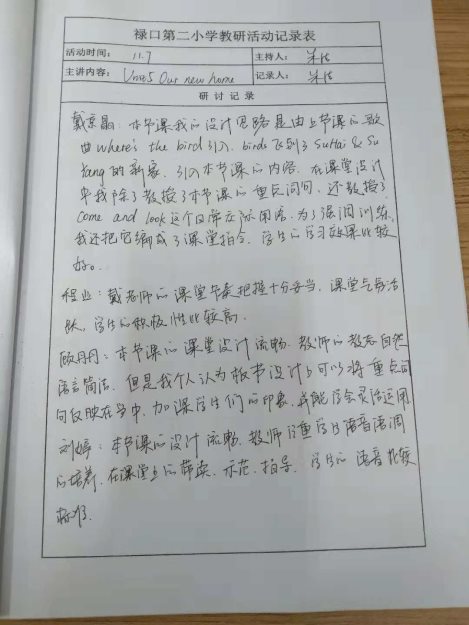 禄口第二小学教研活动记录表
活动时间: 11.7 主持人:
主讲内容: Unit5 Our new home 记录人:
研 讨 记 录
戴京晶: 本节课我的设计思路是由上节课的歌
曲where's the bird引入, birds飞到了SuHai & Su
Yang的新家, 引入本节课的内容. 在课堂设计
中我除了教授了本节课的重点词句, 还教授了
Come and look这个日常交际用语. 为了强调训练,
我还把它编成了课堂指令. 学生的学习效果比较
好。
程业: 戴老师的课堂节奏把握十分妥当, 课堂气氛活
跃, 学生的积极性比较高.
顾丹丹: 本节课的课堂设计流畅. 教师的教态自然
语言简洁. 但是我个人认为板书设计上可以将重点词
句反映在当中, 加深学生们的印象, 并能学会灵活运用
刘婷: 本节课的设计流畅. 教师注重学生语音语调
的培养. 在课堂上的带读、示范、指导. 学生的语音比较
标准.